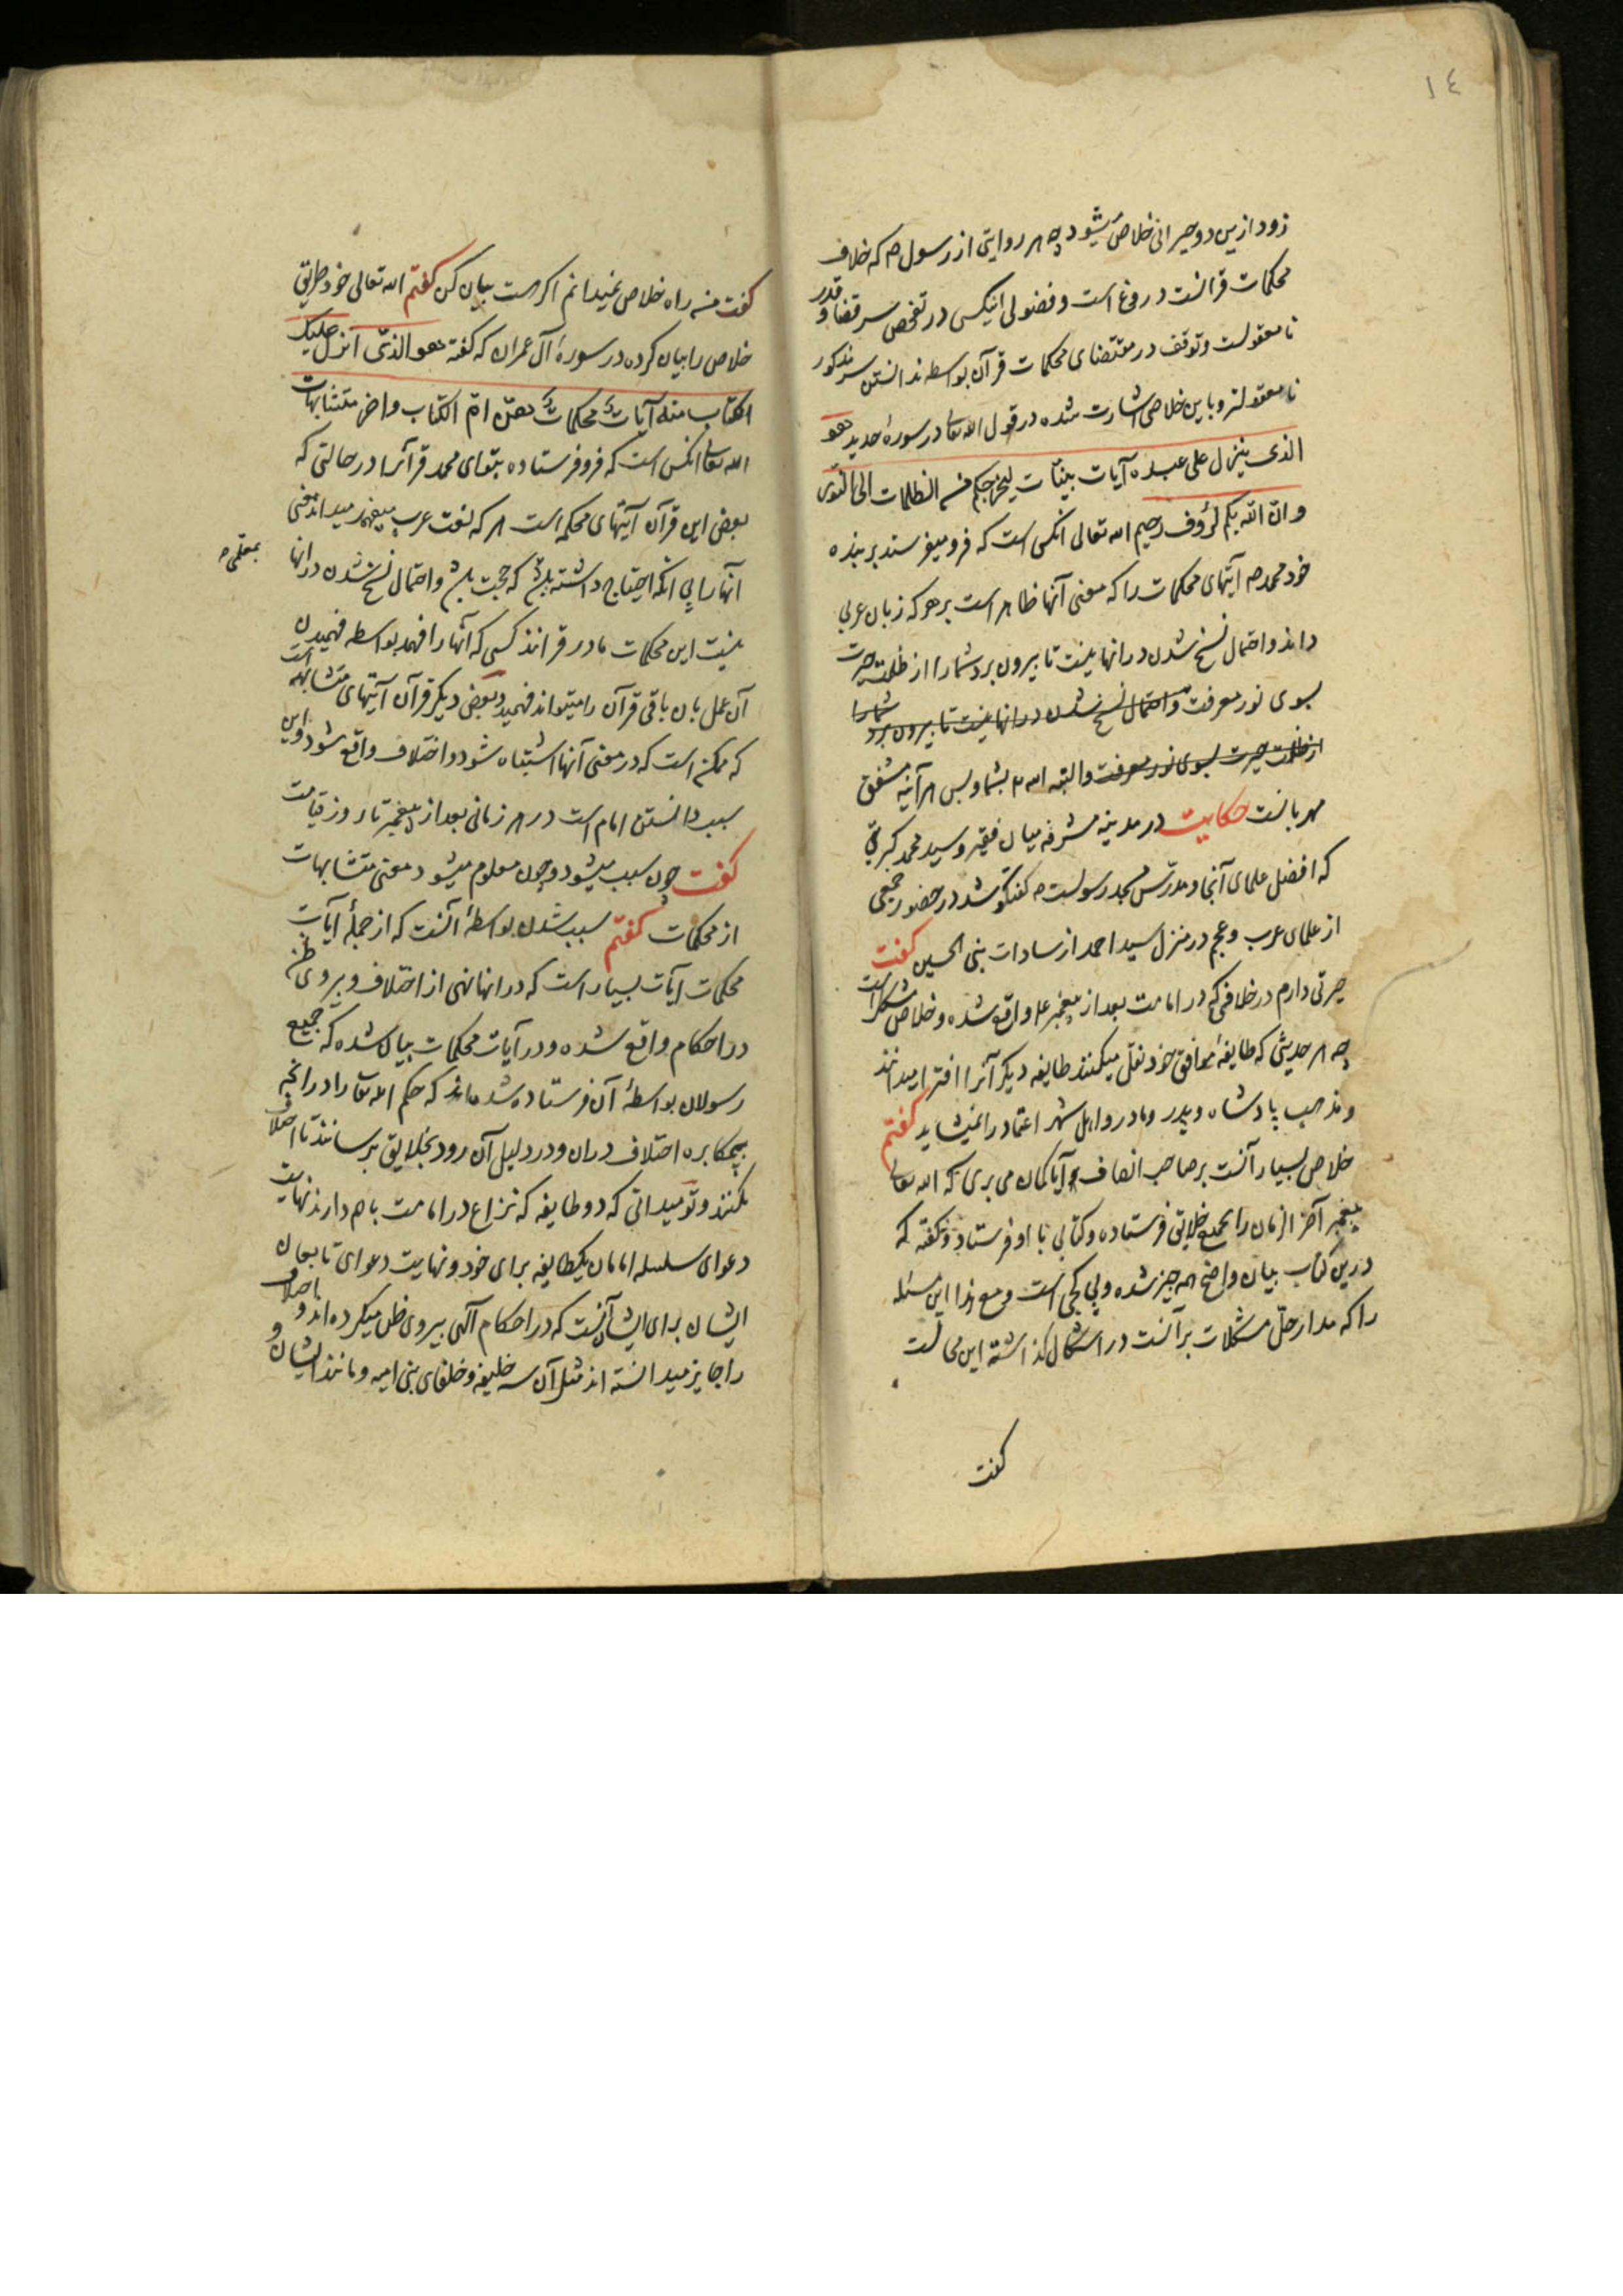 ١٤
زود ازین دو حیرانی خلاص میشود چه هر روایتی از رسول ص که خلاف
محکمات قرآنست دروغ است و فضولی اینکس در تفحص سر قضا و قدر
نامعقولست و توقف در مقتضای محکمات قرآن بواسطه ندانستن سر مذکور
نامعقولتر و باین خلاصی اشارت شده در قول الله تعا در سورهٔ حدید هو
الذی ینزل علی عبده آیات بینات لیخرجکم من الظلمات الی النور
و انّ الله بکم لرؤف رحیم الله تعالی انکس است که فرو میفرستد بر بنده
خود محمد ص آیتهای محکمات را که معنی آنها ظاهر است بر هر که زبان عربی
داند و احتمال نسخ شدن در انها نیست تا بیرون برد شما را از ظلمت حیرت
بسوی نور معرفت و احتمال نسخ شدن در انها نیست تا بیرون برد شما را
از ظلمت حیرت بسوی نور معرفت و البته الله بشما و بس هر آینه مشفق
مهربانست حکایت در مدینه مشرفه میان فقیر و سید محمد کبریتی
که افضل علمای آنجا و مدرّس مسجد رسولست ص گفتگو شد در حضور جمعی
از علمای عرب و عجم در منزل سید احمد از سادات بنی الحسین گفت
حیرتی دارم در خلافی که در امامت بعد از پیغمبر ع واقع شده و خلاص مشکل است
چه هر حدیثی که طایفهٔ موافق خود نقل میکنند طایفه دیگر آنرا افترا میدانند
و مذهب پادشاه و پدر و مادر و اهل شهر اعتماد را نمیشاید گفتم
خلاص بسیار آنست بر صاحب انصاف آیا گمان می بری که الله تعا
پیغمبر آخر الزمان را بجمیع خلایق فرستاده و کتابی با او فرستاده و گفته که
درین کتاب بیان واضح همه چیز شده و بی کجی است و مع هذا این مسئله
را که مدار حلّ مشکلات بر آنست در اشکال گذاشته این محالست
گفت
گفت من راه خلاص نمیدانم اگر هست بیان کن گفتم الله تعالی خود طریق
خلاص را بیان کرده در سورهٔ آل عمران که گفته هو الذی انزل علیک
الکتاب منه آیات محکمات هنّ امّ الکتاب و اخر متشابهات
الله تعالی انکس است که فرو فرستاده بتو ای محمد قرآنرا در حالتی که
بعض این قرآن آیتهای محکمه است هر که لغت عرب میفهمد میداند معنی
آنها را بی آنکه احتیاج داشته باشد که حجت باشد و احتمال نسخ شدن در انها
بمعلمی ص
نیست این محکمات مادر قرآنند کسی که آنها را فهمد بواسطه فهمیدن
آن عمل بان باقی قرآن را میتواند فهمید و بعض دیگر قرآن آیتهای متشابهه است
که ممکن است که در معنی آنها اشتباه شود و اختلاف واقع شود و این
سبب دانستن امام است در هر زمانی بعد از پیغمبر تا روز قیامت
گفت چون سبب میشود و چون معلوم میشود معنی متشابهات
از محکمات گفتم سبب شدن بواسطهٔ آنست که از جملهٔ آیات
محکمات آیات بسیار است که در انها نهی از اختلاف و پیروی ظن
در احکام واقع شده و در آیات محکمات بیان شده که جمیع
رسولان بواسطهٔ آن فرستاده شده‌اند که حکم الله تعا را در انچه
بی مکابره اختلاف در ان و در دلیل آن رود بخلایق برسانند تا اختلاف
نکنند و تو میدانی که دو طایفه که نزاع در امامت با هم دارند نهایت
دعوای سلسله امامان یکطایفه برای خود و نهایت دعوای تابعان
ایشان برای ایشان آنست که در احکام الهی پیروی ظن میکرده‌اند و اختلاف
را جایز میدانسته‌اند مثل آن سه خلیفه و خلفای بنی امیه و مانند ایشان و